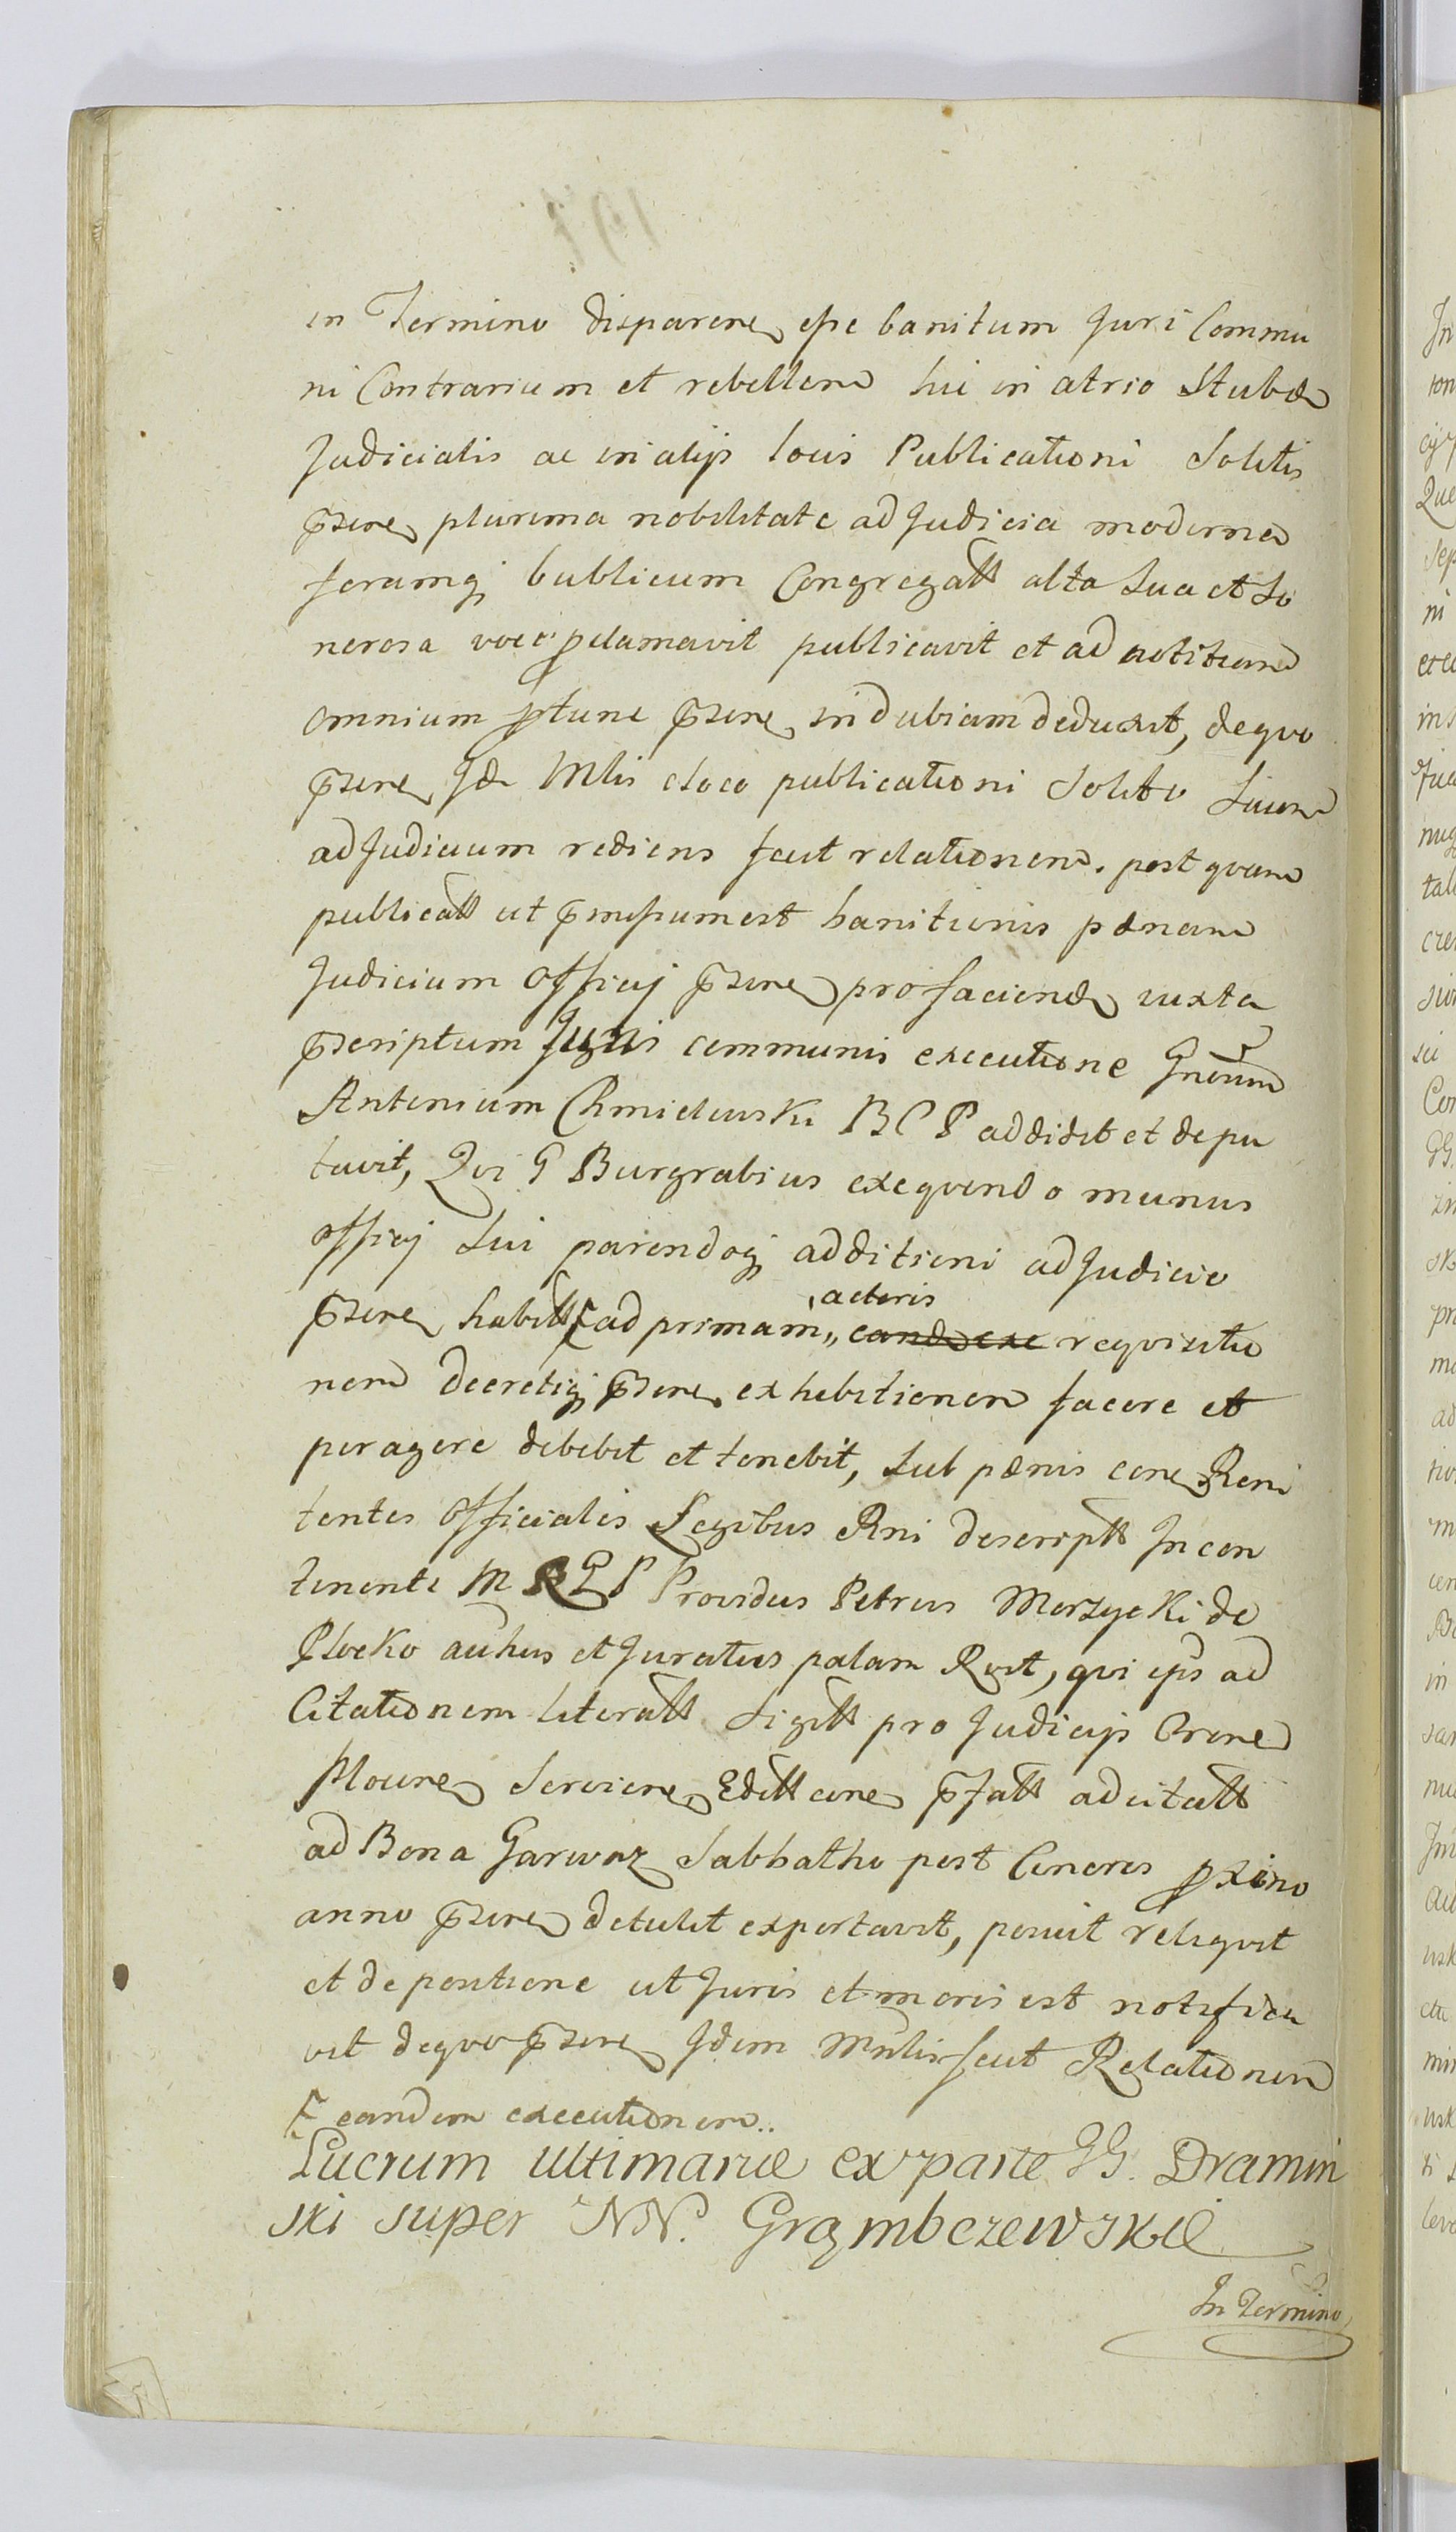 in Termino disparen, esse banitum Juri Commu
ni Contrarium et rebellem hic in atrio Stubæ
Judicialis ac in alijs locis Publicationi Solitis
pnsen, plurima nobilitate ad Judicia moderna
forumq; bublicum Congregatt alta Sua et So
norosa voce pclamavit publicavit et ad notitiam
omnium ptunc pnsen, indubiam deduxit, de quo
pnsen, Id Mlis e loco publicationi Solito Suum
ad Judicium rediens fecit relationem. post quam
publicatt ut pmissum est banitionis pænam
Judicium Officij pnsen, pro facienda iuxta
pscriptum Juris communis executione Gnosum
Antonium Chmielewski B C P addidit et depu
tavit, Qvi G Burgrabius exeqvendo munus
officij Sui parendoq; additioni ad Judicio
pnsen, habitt ad primam „ actoris requisitio
nem decretiq; pnsen, exhibitionem facere et
peragere debebit et tenebit, Sub pænis cone, Reni
tentes Officiales Legibus Rni descriptt Incon
tinenti M R G P Providus Petrus Morzycki de
Plocko authus et Juratus palam Rvit, qvi ips ad
Citationem literatt Sigitt pro Judicijs Crone
Plocine, Servien, Editt cone, pfatt ad citatt
ad Bona Garwarz Sabbatho post Cineres pximo
anno pnsen, detulit exportavit, posuit reliqvit
et de positione ut Juris et moris est notifica
vit de quo pnsen, Idem Mnlis fecit Relationem
eandem executionem..
Lucrum ultimariæ ex parte GG. Dramin
ski super NN. Grąmbczewskie
In Termino